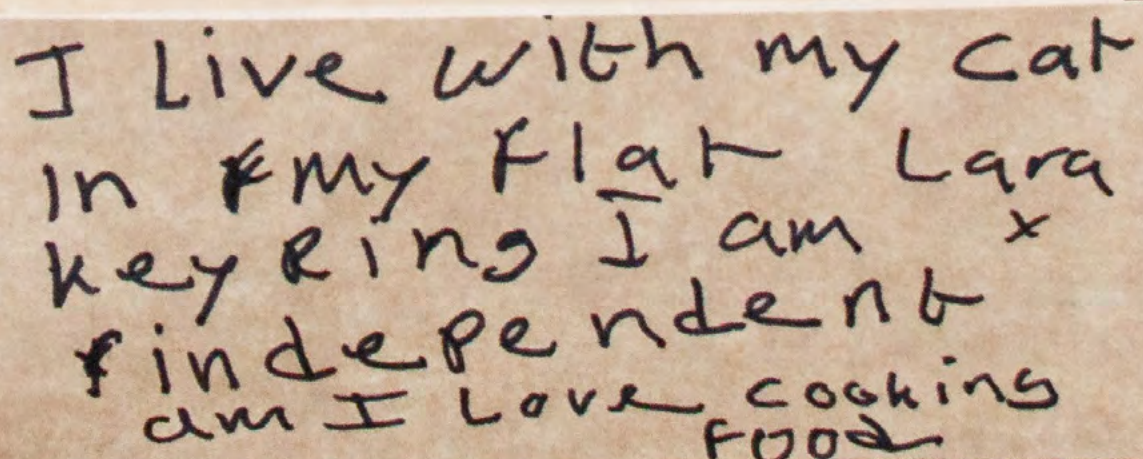 I Live with my cat
in my Flat Lara
key Ring I am x
independent
am I Love cooking
Food